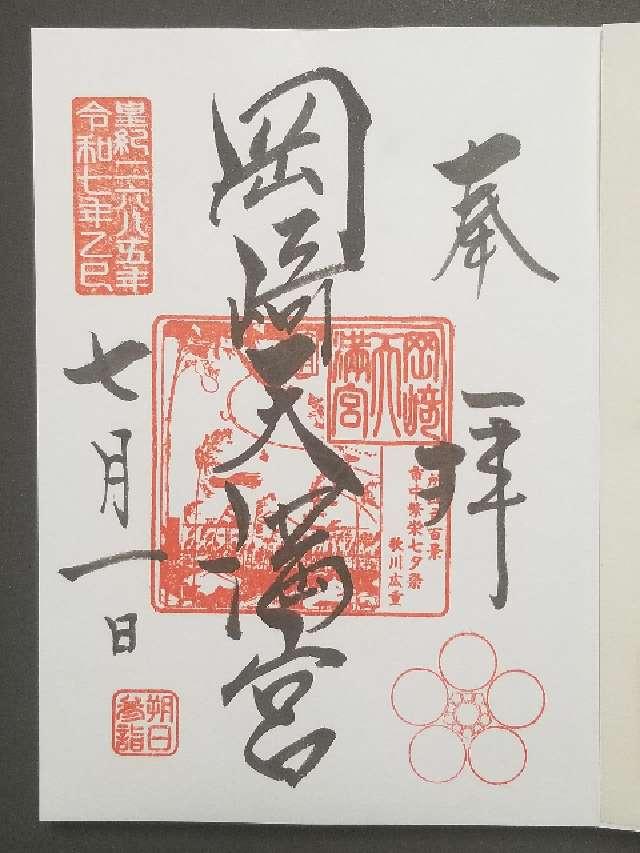 奉拝
岡崎天満宮
岡崎
天
満宮
百景
市中繁栄七夕祭
歌川広重
皇紀二六八五年
令和七年乙巳
七月一日
朔日
参詣